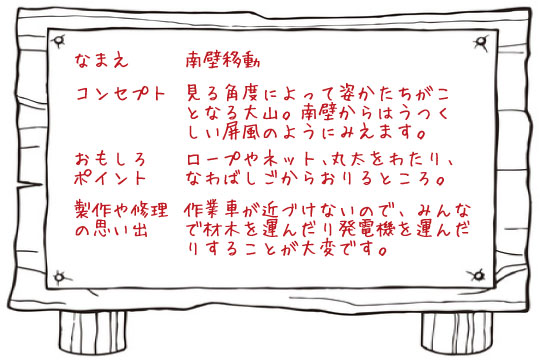 なまえ 南壁移動
コンセプト 見る角度によって姿かたちがこ
となる大山。南壁からはうつく
しい屏風のようにみえます。
おもしろ ロープやネット、丸太をわたり、
ポイント なわばしごからおりるところ。
製作や修理 作業車が近づけないので、みんな
の思い出 で材木を運んだり発電機を運んだ
りすることが大変です。